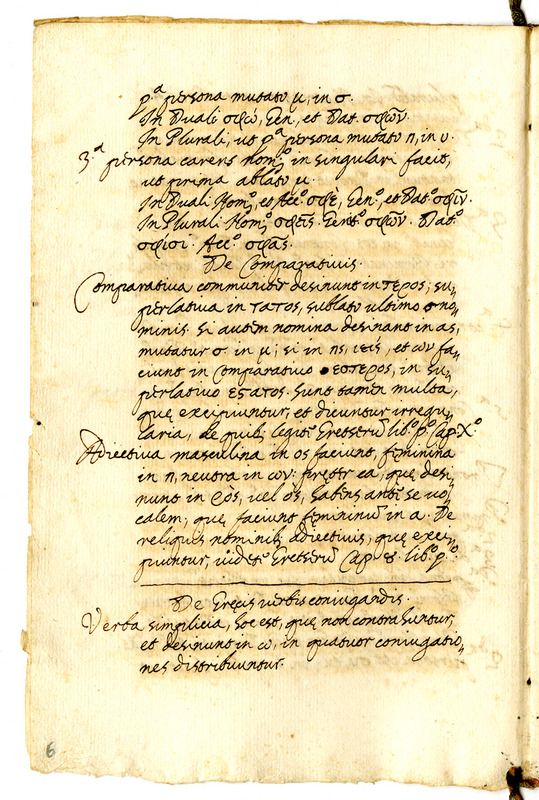 p.ª persona mutato μ, in σ.
In Duali σφώ, Gen., et Dat. σφῶν.
In Plurali, ut pª persona mutato η, in υ.
3.ª persona carens Nom.º in singulari facit,
ut prima ablato μ.
In Duali Nom.º, et Acc.º σφὲ, Gen.º, et Dat.º σφὶν.
In Plurali Nom.º σφεῖς. Gent.º σφῶν. Dat.º
σφίσι. Acc.º σφᾶς.
De Comparativis.
Comparativa communiter desinunt in τερος; su„
perlativa in τατος, sublato ultimo σ no„
minis. Si autem nomina desinant in ας,
mutatur σ in μ; si in ης, εις, et ων fa„
ciunt in comparativo εστερος, in su„
perlativo εστατος. Sunt tamen multa,
quę excipiuntur, et dicuntur irregu„
laria, de quib; legito Gretserũ lib.º p.º Cap. X.º
Adiectiva masculina in ος faciunt, feminina
in η, neutra in ων: pręter ea, quę desi„
nunt in ρος, vel ος, habens antẽ se vo„
calem; quę faciunt femininũ in α. De
reliquis nominib; Adiectivis, quę exci„
piuntur, videto Gretserũ Cap. 8. lib.º p.º
De Gręcis verbis coniugandis.
Verba simplicia, hoc est, quę non contrahuntur,
et desinunt in ω, in quatuor coniugatio„
nes distribuuntur.
6